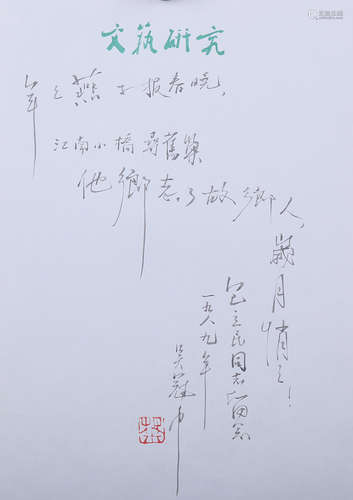 文艺研究
年之燕子报春晓,
江南小桥尋舊巢
他鄉忘了故鄉人,
歲月悄之!
立民同志留念
一九八九年
吴冠中